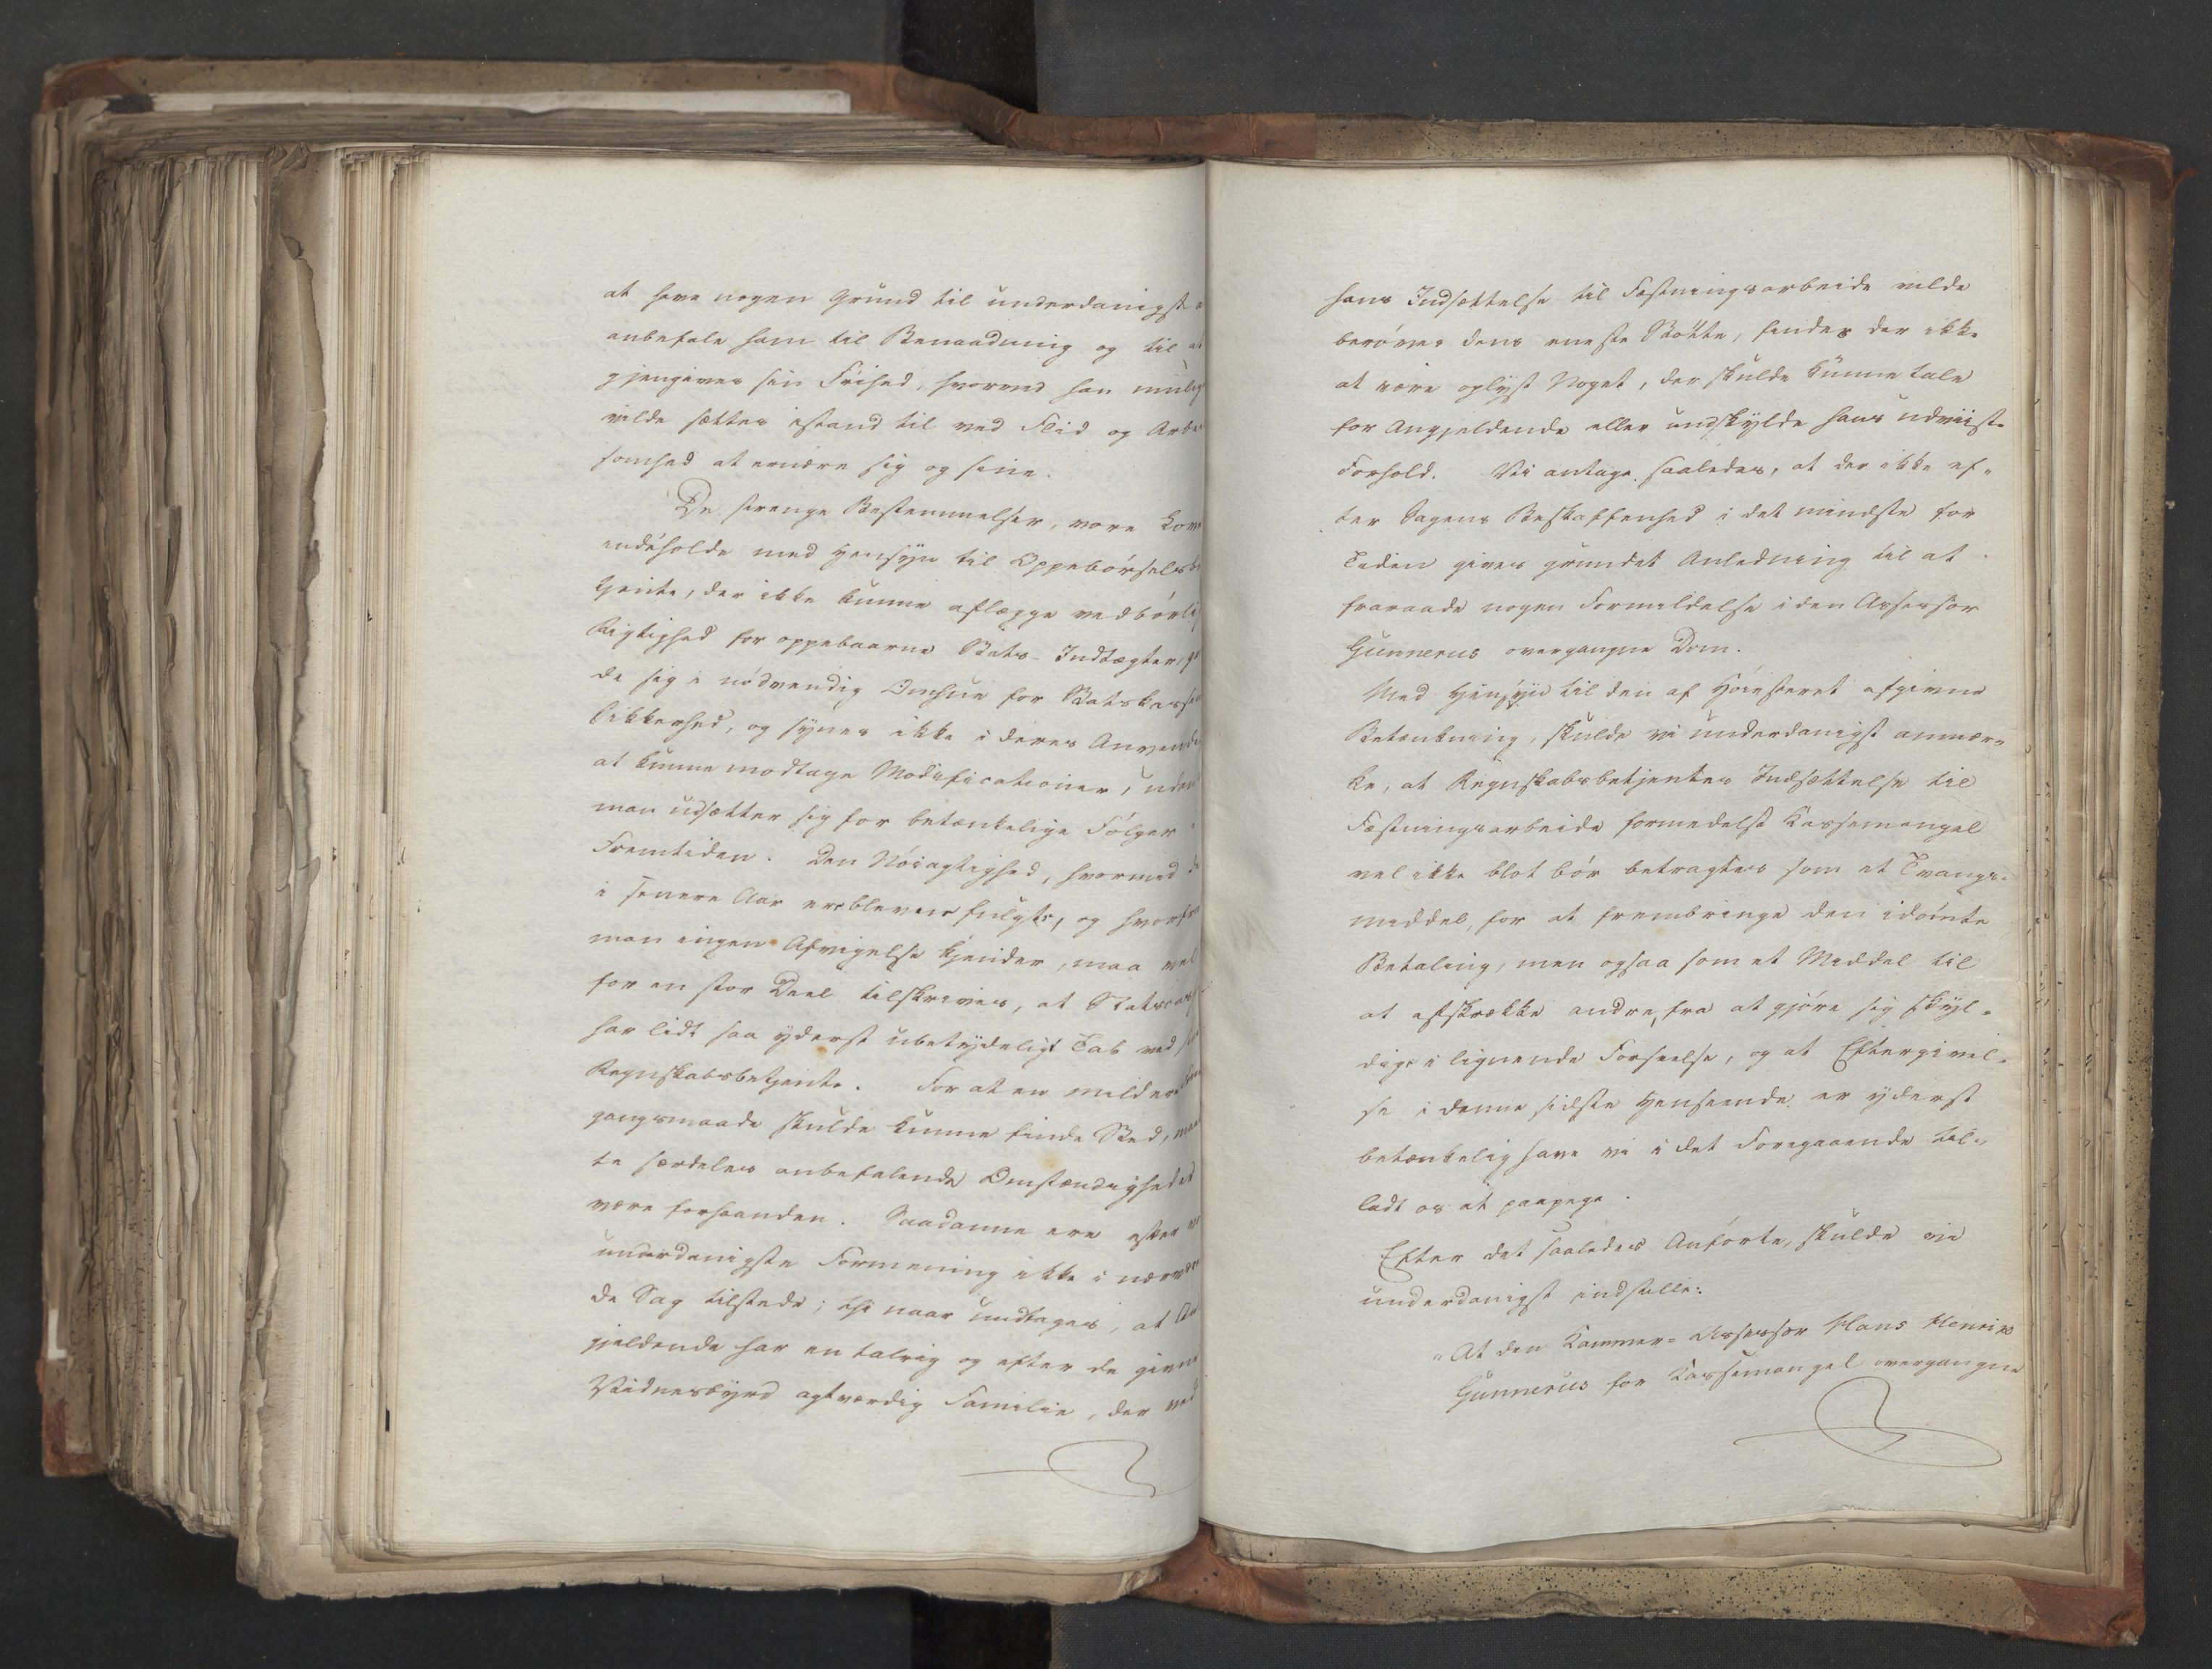 at have nogen Grund til underdanigst
anbefale ham til Benaadning og til at
gjengives sin Frihed, hvorved han mulig
vilde sættes istand til ved Flid og Arbei
somhed at ernære sig og sine.
De strenge Bestemmelser, vore Love
indeholde med Hensyn til Oppebørselsbe
tjente, der ikke kunne aflægge vedbørlig
Rigtighed for oppebaarne Stats-Indtægter, g
de sig i nødvendig Omhue for Statskassen
Sikkerhed, og synes ikke i deres Anvende
at kunne modtage Modificationer, uden
man udsætter sig for betænkelige Følger i
Fremtiden. Den Nøiagtighed, hvormed de
i senere Aar ere blevne fulgte, og hvorfra
man ingen Afvigelse kjender, maa vel
for en stor Deel tilskrives, at Statscass
har lidt saa yderst ubetydeligt Tab ved
Regnskabsbetjente. For at en mildere Frem
gangsmaade skulde kunne finde Sted, maat
te særdeles anbefalende Omstændigheder
være forhaanden. Saadanne ere efter vor
underdanigste Formening ikke i nærvæ
de Sag tilstede; thi naar undtages, at An
gjeldende har en talrig og efter de givne
Vidnesbyrd agtværdig Familie, der ved
hans Indsættelse til Fæstningsarbeide vilde
berøves dens eneste Støtte, findes der ikke
at være oplyst Noget, der skulde kunne tale
for Angjeldende eller undskylde hans udviiste
Forhold. Vi antage saaledes, at der ikke ef-
ter Sagens Beskaffenhed i det mindste for
Tiden gives grundet Anledning til at
fraraade nogen Formildelse i den Assessor
Gunnerus overgangne Dom.
Med Hensyn til den af Høiesteret afgivne
Betænkning, skulde vi underdanigst anmær-
ke, at Regnskabsbetjentes Indsættelse til
Fæstningsarbeide formedelst Kassemangel
vel ikke blot bør betragtes som et Tvangs-
middel, for at frembringe den idømte
Betaling, men ogsaa som et Middel til
at afskrække andre, fra at gjøre sig skyl-
dige i lignende Forseelse, og at Eftergivel-
se i denne sidste Henseende er yderst
betænkelig have vi i det Foregaaende til-
ladt os at paapege.
Efter det saaledes Anførte, skulde vi
underdanigst indstille:
"At den Kammer-Assessor Hans Henrik
Gunnerus for Kassemangel overgangne